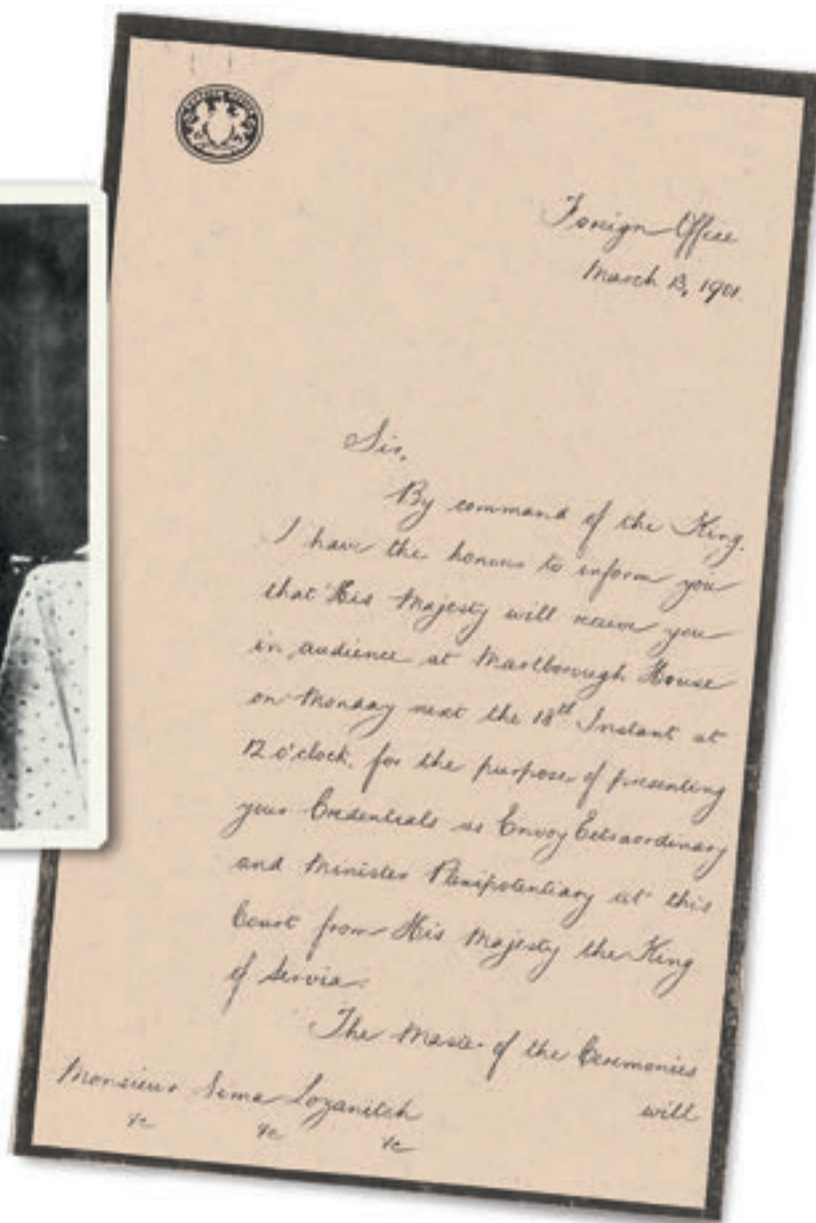 Foreign Office
March 13, 1901.
Sir,
By command of the King,
I have the honour to inform you
that His Majesty will receive you
in audience at Marlborough House
on Monday next the 18th Instant at
12 o'clock, for the purpose of presenting
your Credentials as Envoy Extraordinary
and Minister Plenipotentiary at this
Court from His Majesty the King
of Servia.
The Master of the Ceremonies
will
Monsieur Sima Lozanitch
&c &c &c